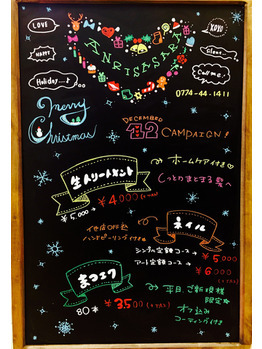 LOVE
XOXO
HAPPY
ANRI SASARA
Silent
Holiday
Call me
0774-44-1411
Merry
Christmas
DECEMBER
12 CAMPAIGN!
ホームケア付き
生トリートメント
しっとりまとまる髪へ
¥5,000→¥4,000
ネイル
付け替えOFF込
ハンドピーリング付き
シンプル定額コース→¥5,000
アート定額コース→¥6,000
まつエク
平日、ご新規様
限定☆
80本 ¥3,500
オフ込み
コーティング付き